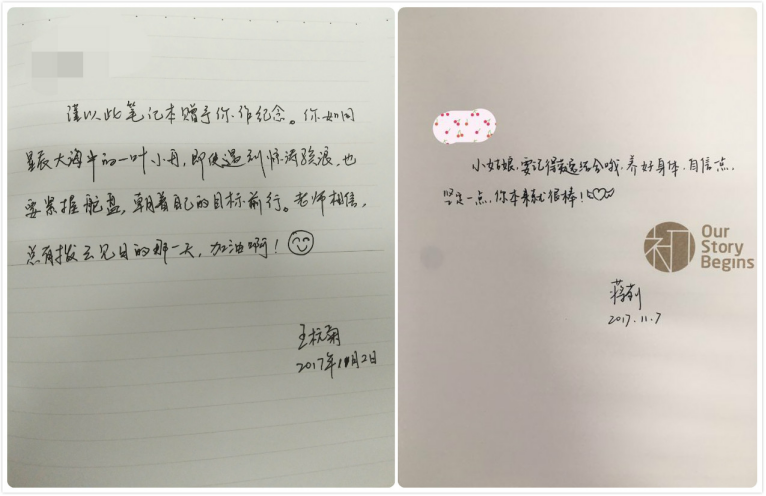 谨以此笔记本赠予你作纪念。你如同
星辰大海中的一叶小舟，即使遇到惊涛骇浪，也
要紧握舵盘，朝着自己的目标前行。老师相信，
总有拨云见日的那一天，加油啊！
王杭菊
2017年11月2日
小姑娘，要记得我这话会哦，养好身体，自信点，
坚定一点，你本来就很棒！
2017.11.7
Our
Story
Begins